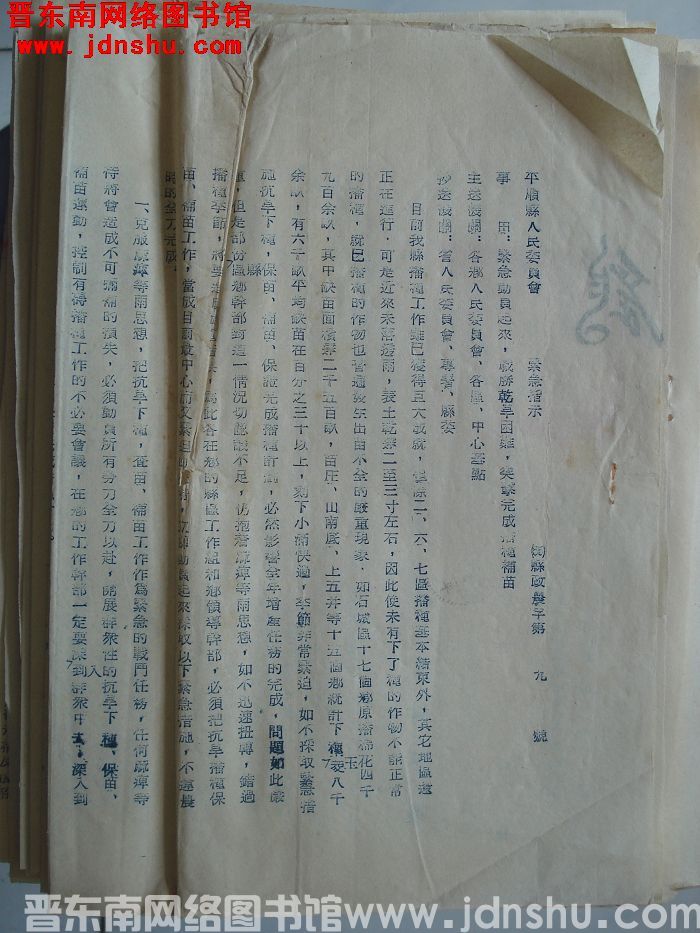 晋东南网络图书馆
www.jdnshu.com
平順縣人民委員會 緊急指示 縣政農字第 九 號
事 由:緊急動員起來,戰勝乾旱困難,突擊完成播種補苗
主送機關:各鄉人民委員會、各區、中心基點
抄送機關:省人民委員會、專署、縣委
目前我縣播種工作雖已獲得巨大成就,但除二、六、七區播種基本結束外,其它地區還
正在進行,可是近來未落透雨,表土乾燥二至三寸左右,因此使未有下了種的作物不能正常
的播種,就已播種的作物也普遍發生出苗不全的嚴重現象,如石城區十七個鄉原播棉花四千
九百余畝,其中缺苗面積達二千五百畝,苗庄、山南底、上五井等十五個鄉統計下種玉茭八千
余畝,有六千畝平均缺苗在百分之三十以上,剩下小滿快過,季節非常緊迫,如不採取緊急措
施抗旱下種,保苗、補苗、保證完成播種計劃,必然影響全年增產任務的完成,問題如此嚴
重,但是部份縣區鄉幹部對這一情況切認識不足,仍抱着麻痺等雨思想,如不迅速扭轉,錯過
播種季節,將要造成,爲此各在鄉的縣區工作組和鄉領導幹部,必須把抗旱播種保
苗、補苗工作,當成目前最中心而又緊迫的,立即動員起來採取以下緊急措施,不違農
時的全力完成。
一、克服麻痺等雨思想,把抗旱下種,查苗、補苗工作作爲緊急的戰鬥任務,任何麻痺等
待將會造成不可彌補的損失,必須動員所有勞力全力以赴,開展群眾性的抗旱下種、保苗、
補苗運動,控制有碍播種工作的不必要會議,在鄉的工作幹部一定要深入到群眾中去,深入到
晋东南网络图书馆 www.jdnshu.com